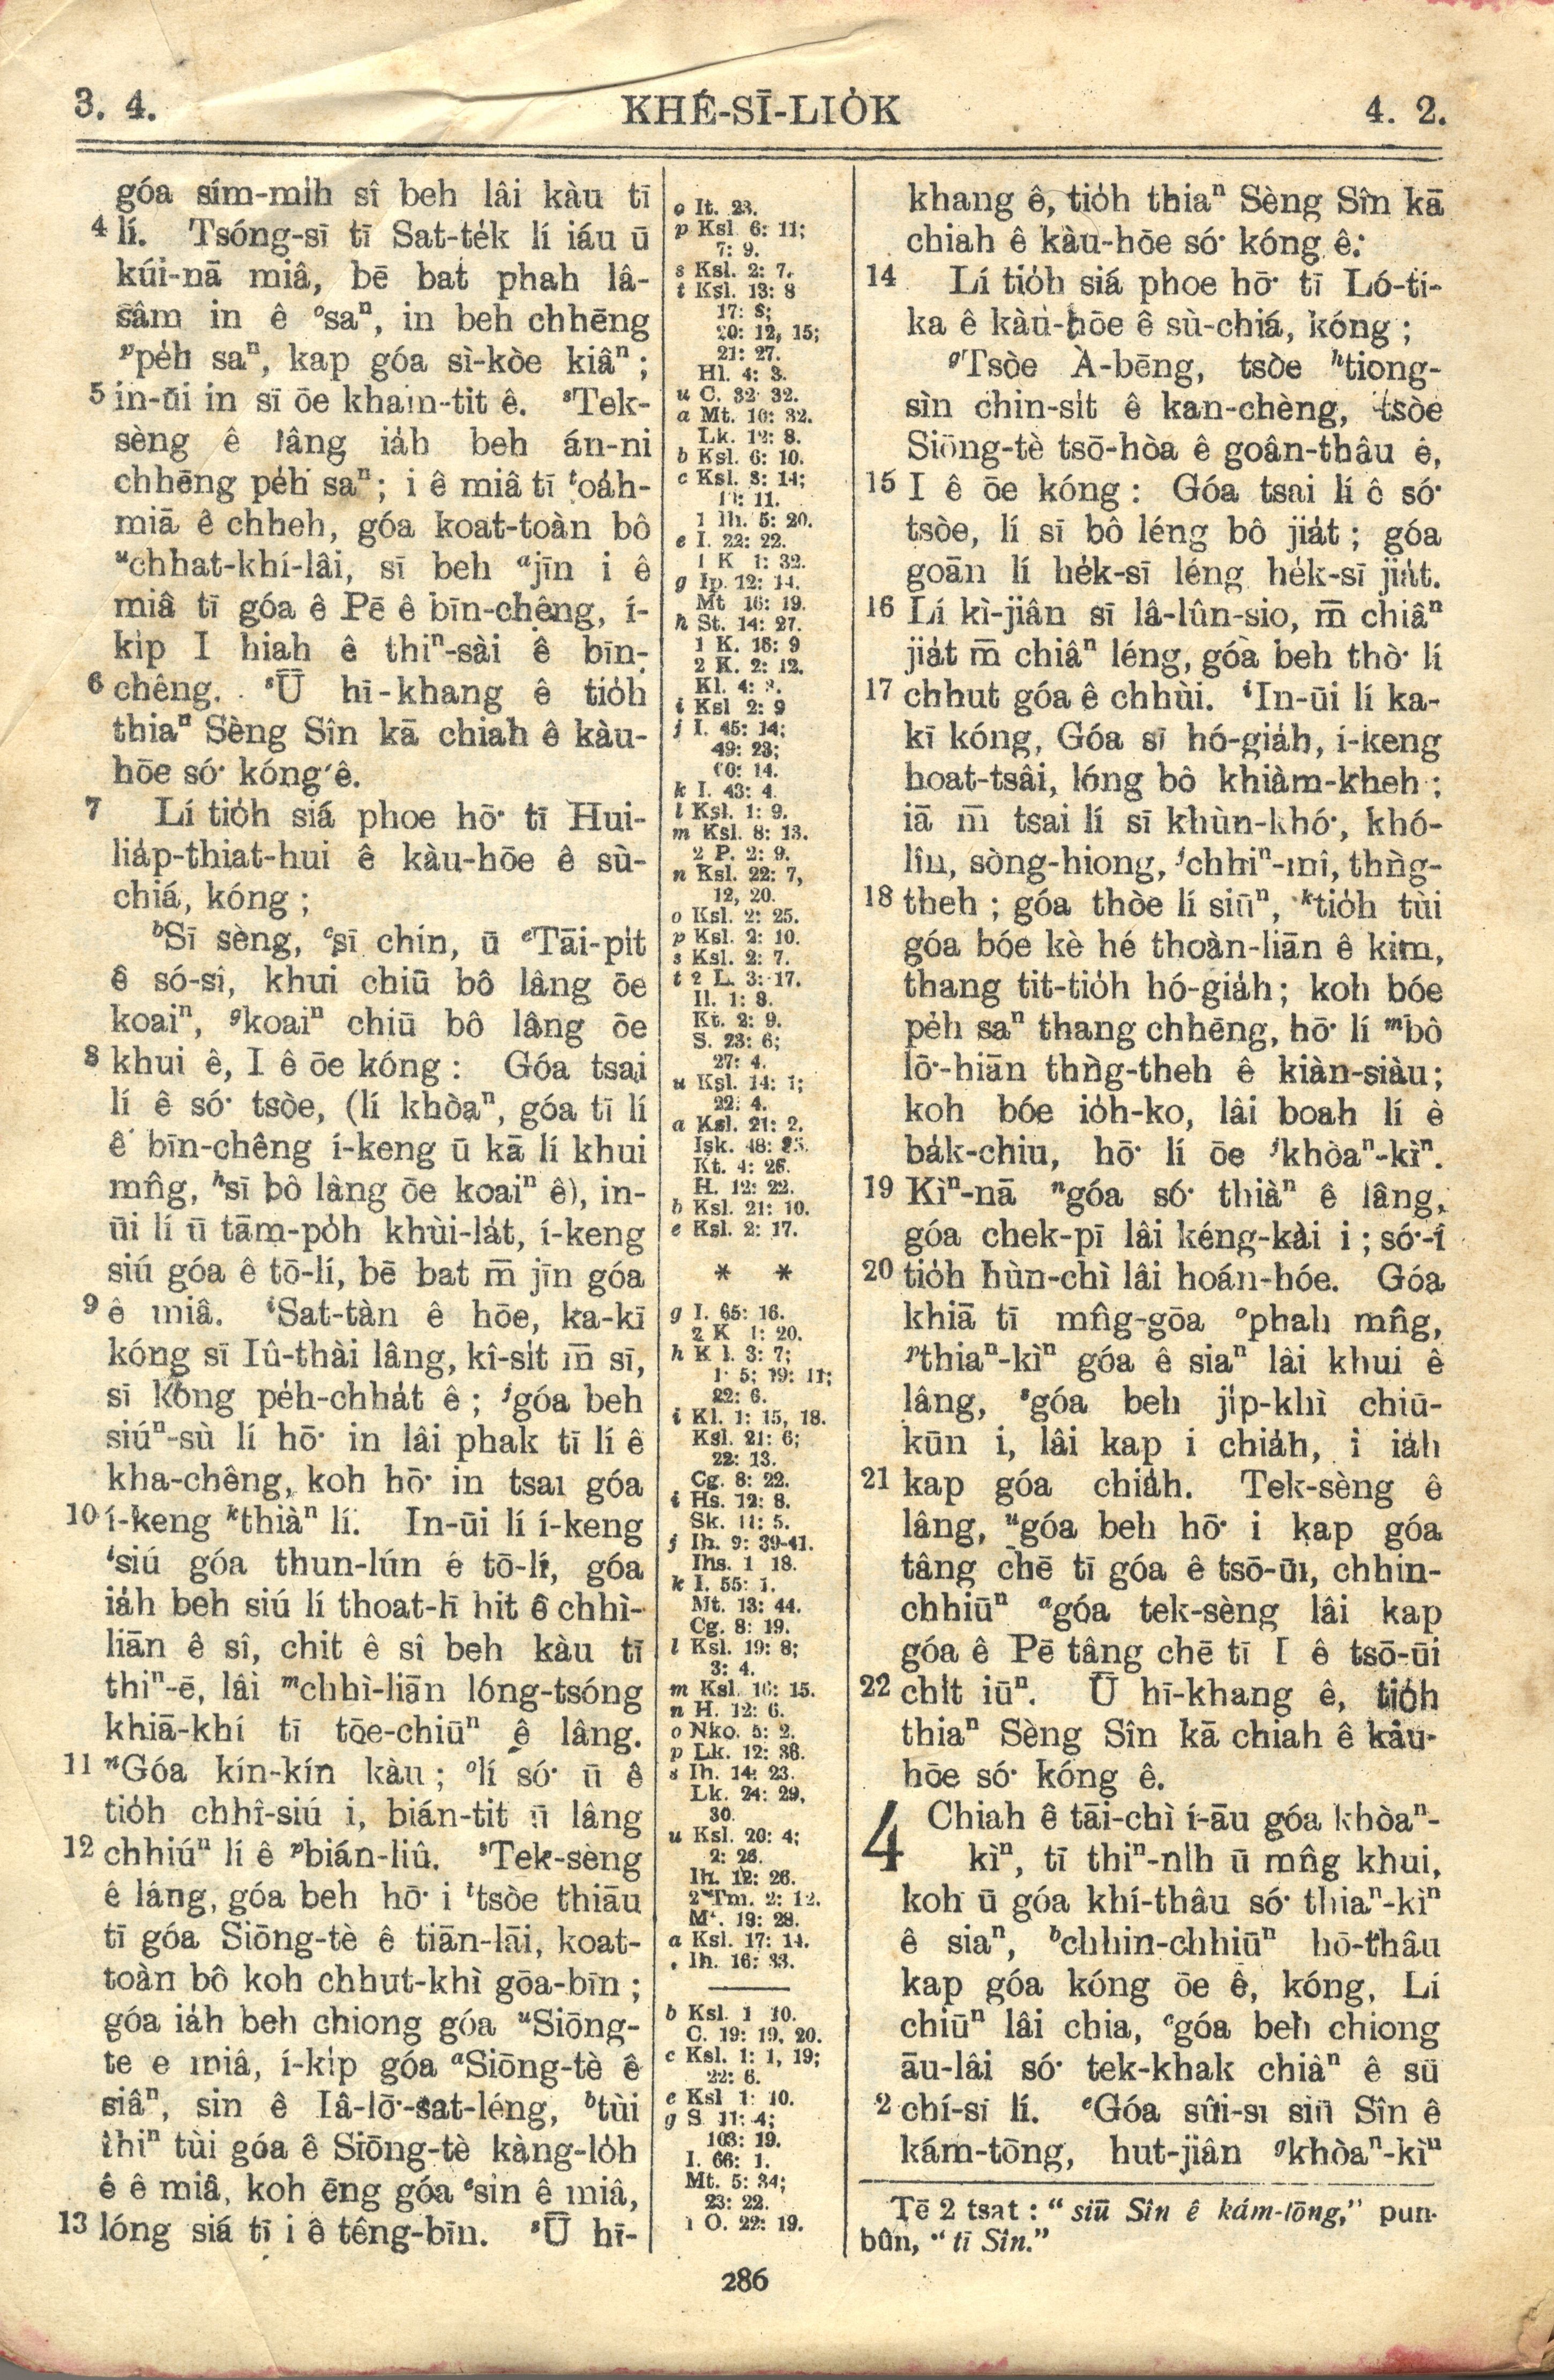 3. 4.
KHÉ-SĪ-LIO̍K
4. 2.
góa sím-mi̍h sî beh lâi kàu tī
4 lí. Tsóng-sī tī Sat-te̍k lí iáu ū
kúi-nā miâ, bē bat phah lâ-
sâm in ê ᵒsaⁿ, in beh chhēng
ᵖpe̍h saⁿ, kap góa sì-kòe kiâⁿ;
5 in-ūi in sī ōe kham-tit ê. ˢTek-
sèng ê lâng ia̍h beh án-ni
chhēng pe̍h saⁿ; i ê miâ tī ᵗoa̍h-
miā ê chheh, góa koat-toàn bô
ᵘchhat-khí-lâi, sī beh ᵃjīn i ê
miâ tī góa ê Pē ê bīn-chêng, í-
ki̍p I hiah ê thiⁿ-sài ê bīn-
6 chêng. ˢŪ hī-khang ê tio̍h
thiaⁿ Sèng Sîn kā chiah ê kàu-
hōe só͘ kóng ê.
7 Lí tio̍h siá phoe hō͘ tī Hui-
lia̍p-thiat-hui ê kàu-hōe ê sù-
chiá, kóng;
ᵇSī sèng, ᶜsī chin, ū ᵉTāi-pi̍t
ê só-sî, khui chiū bô lâng ōe
koaiⁿ, ᵍkoaiⁿ chiū bô lâng ōe
8 khui ê, I ê ōe kóng: Góa tsai
lí ê só͘ tsòe, (lí khòaⁿ, góa tī lí
ê bīn-chêng í-keng ū kā lí khui
mn̂g, ʰsī bô lâng ōe koaiⁿ ê), in-
ūi lí ū tām-po̍h khùi-la̍t, í-keng
siú góa ê tō-lí, bē bat m̄ jīn góa
9 ê miâ. ⁱSat-tàn ê hōe, ka-kī
kóng sī Iû-thài lâng, kî-si̍t m̄ sī,
sī kóng pe̍h-chha̍t ê; ʲgóa beh
siúⁿ-sù lí hō͘ in lâi phak tī lí ê
kha-chêng, koh hō͘ in tsai góa
10 í-keng ᵏthiàⁿ lí. In-ūi lí í-keng
ˡsiú góa thun-lún ê tō-lí, góa
ia̍h beh siú lí thoat-lī hit ê chhì-
liān ê sî, chit ê sî beh kàu tī
thiⁿ-ē, lâi ᵐchhì-liān lóng-tsóng
khiā-khí tī tōe-chiūⁿ ê lâng.
11 ⁿGóa kín-kín kàu; ᵒlí só͘ ū ê
tio̍h chhî-siú i, bián-tit ū lâng
12 chhiúⁿ lí ê ᵖbián-liû. ˢTek-sèng
ê lâng, góa beh hō͘ i ᵗtsòe thiāu
tī góa Siōng-tè ê tiān-lāi, koat-
toàn bô koh chhut-khì gōa-bīn;
góa ia̍h beh chiong góa ᵘSiōng-
te e miâ, í-ki̍p góa ᵃSiōng-tè ê
siâⁿ, sin ê Iâ-lō͘-sat-léng, ᵇtùi
thiⁿ tùi góa ê Siōng-tè kàng-lo̍h
ê ê miâ, koh ēng góa ᵉsin ê miâ,
13 lóng siá tī i ê têng-bīn. ˢŪ hī-
o It. 23.
p Ksl. 6: 11;
7: 9.
s Ksl. 2: 7.
t Ksl. 13: 8
17: 8;
20: 12, 15;
21: 27.
Hl. 4: 3.
u C. 32 32.
a Mt. 10: 32.
Lk. 12: 8.
b Ksl. 6: 10.
c Ksl. 3: 14;
11: 11.
1 Ih. 5: 20.
e I. 22: 22.
1 K 1: 32.
g Ip. 12: 14.
Mt 16: 19.
h St. 14: 27.
1 K. 18: 9
2 K. 2: 12.
Kl. 4: 3.
i Ksl 2: 9
j I. 45: 14;
49: 23;
60: 14.
k I. 43: 4.
l Ksl. 1: 9.
m Ksl. 8: 13.
2 P. 2: 9.
n Ksl. 22: 7,
12, 20.
o Ksl. 2: 25.
p Ksl. 2: 10.
s Ksl. 2: 7.
t 2 L. 3: 17.
Il. 1: 8.
Kt. 2: 9.
S. 23: 6;
27: 4.
u Ksl. 14: 1;
22: 4.
a Ksl. 21: 2.
Isk. 48: 35.
Kt. 4: 26.
H. 12: 22.
b Ksl. 21: 10.
e Ksl. 2: 17.
* *
g I. 65: 16.
2 K 1: 20.
h K 3: 7;
5; 19: 11;
22: 6.
i Kl. 1: 15, 18.
Ksl. 21: 6;
22: 13.
Cg. 8: 22.
i Hs. 12: 8.
Sk. 11: 5.
j Ih. 9: 39-41.
Ihs. 1 18.
k I. 55: 1.
Mt. 13: 44.
Cg. 8: 19.
l Ksl. 19: 8;
3: 4.
m Ksl. 16: 15.
n H. 12: 6.
o Nko. 5: 2.
p Lk. 12: 36.
s Ih. 14: 23.
Lk. 24: 29,
30.
u Ksl. 20: 4;
2: 26.
Ih. 12: 26.
2 Tm. 2: 12.
Mt. 19: 28.
a Ksl. 17: 14.
Ih. 16: 33.
b Ksl. 1 10.
C. 19: 19, 20.
c Ksl. 1: 1, 19;
22: 6.
e Ksl 1: 10.
g S 11: 4;
103: 19.
I. 66: 1.
Mt. 5: 34;
23: 22.
O. 22: 19.
khang ê, tio̍h thiaⁿ Sèng Sîn kā
chiah ê kàu-hōe só͘ kóng ê.
14 Lí tio̍h siá phoe hō͘ tī Ló-ti-
ka ê kàu-hōe ê sù-chiá, kóng;
ᵍTsòe À-bēng, tsòe ʰtiong-
sìn chin-si̍t ê kan-chèng, tsòe
Siōng-tè tsō-hòa ê goân-thâu ê,
15 I ê ōe kóng: Góa tsai lí ê só͘
tsòe, lí sī bô léng bô jia̍t; góa
goān lí he̍k-sī léng he̍k-sī jia̍t.
16 Lí kì-jiân sī lâ-lûn-sio, m̄ chiâⁿ
jia̍t m̄ chiâⁿ léng, góa beh thò͘ lí
17 chhut góa ê chhùi. ⁱIn-ūi lí ka-
kī kóng, Góa sī hó-gia̍h, í-keng
hoat-tsâi, lóng bô khiàm-kheh;
iā m̄ tsai lí sī khùn-khó͘, khó-
lîn, sòng-hiong, ʲchhiⁿ-mî, thǹg-
18 theh; góa thòe lí siūⁿ, ᵏtio̍h tùi
góa bóe kè hé thoàn-liān ê kim,
thang tit-tio̍h hó-gia̍h; koh bóe
pe̍h saⁿ thang chhēng, hō͘ lí ᵐbô
lō͘-hiān thǹg-theh ê kiàn-siàu;
koh bóe io̍h-ko, lâi boah lí ê
ba̍k-chiu, hō͘ lí ōe ʲkhòaⁿ-kìⁿ.
19 Kìⁿ-nā ⁿgóa só͘ thiàⁿ ê lâng,
góa chek-pī lâi kéng-kài i; só͘-í
20 tio̍h hùn-chì lâi hoán-hóe. Góa
khiā tī mn̂g-gōa ᵒphah mn̂g,
ᵖthiaⁿ-kìⁿ góa ê siaⁿ lâi khui ê
lâng, ˢgóa beh ji̍p-khì chiū-
kūn i, lâi kap i chia̍h, i ia̍h
21 kap góa chia̍h. Tek-sèng ê
lâng, ᵘgóa beh hō͘ i kap góa
tâng chē tī góa ê tsō-ūi, chhin-
chhiūⁿ ᵃgóa tek-sèng lâi kap
góa ê Pē tâng chē tī I ê tsō-ūi
22 chi̍t iūⁿ. Ū hī-khang ê, tio̍h
thiaⁿ Sèng Sîn kā chiah ê kàu-
hōe só͘ kóng ê.
4 Chiah ê tāi-chì í-āu góa khòaⁿ-
kìⁿ, tī thiⁿ-ni̍h ū mn̂g khui,
koh ū góa khí-thâu só͘ thiaⁿ-kìⁿ
ê siaⁿ, ᵇchhin-chhiūⁿ hō-thâu
kap góa kóng ōe ê, kóng, Lí
chiūⁿ lâi chia, ᶜgóa beh chiong
āu-lâi só͘ tek-khak chiâⁿ ê sū
2 chí-sī lí. ᵉGóa sûi-sî siū Sîn ê
kám-tōng, hut-jiân ᵍkhòaⁿ-kìⁿ
Tē 2 tsat: “siū Sîn ê kám-tōng,” pun-
bûn, “tī Sîn.”
286